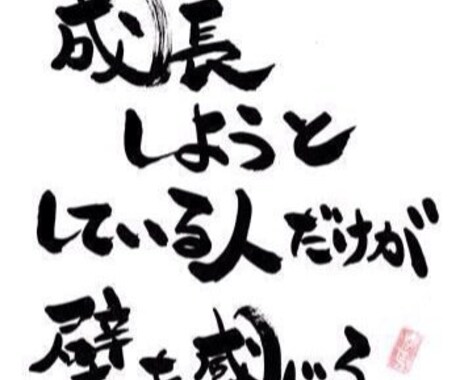 成長
しようと
している人だけが
壁を感じる